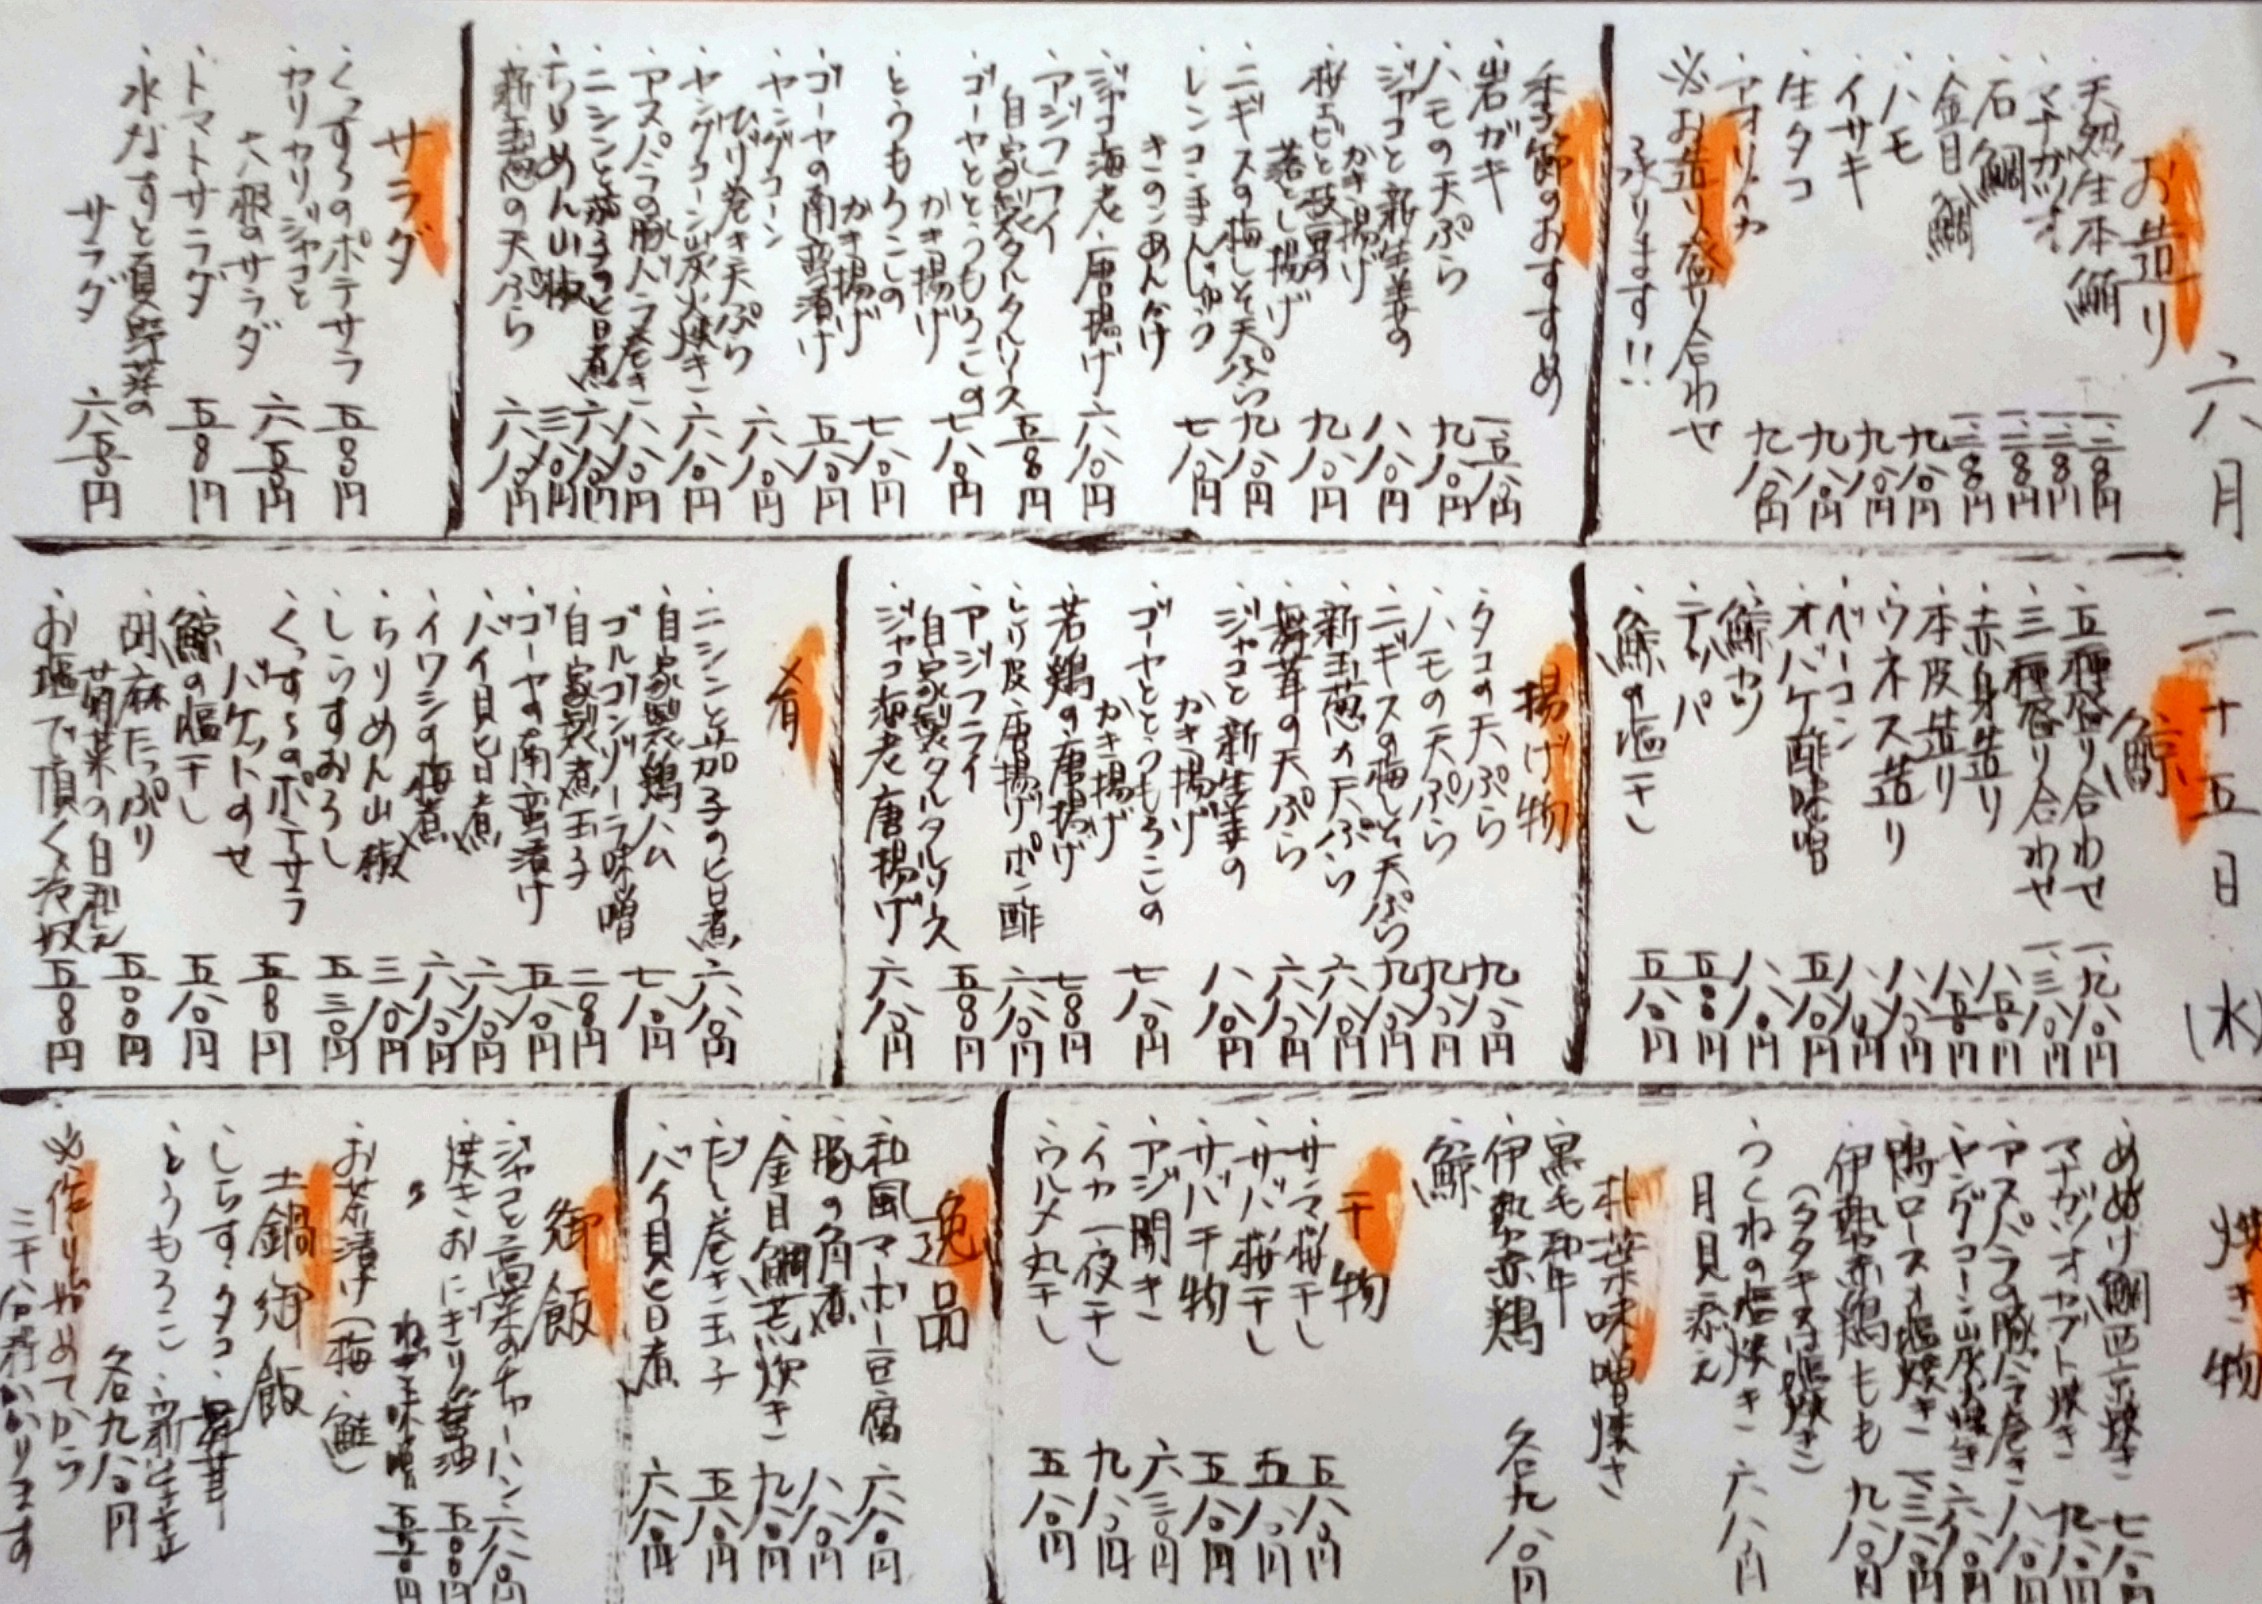 六月二十五日(水)
お造り
・天然生本鮪 一、二八〇円
・マナガツオ 一、二八〇円
・石鯛 一、二八〇円
・金目鯛 一、二八〇円
・ハモ 九八〇円
・イサキ 九八〇円
・生タコ 九八〇円
・アオリイカ 九八〇円
※お造り盛り合わせ
承ります!!
季節のおすすめ
・岩ガキ
・ハモの天ぷら 九八〇円
・ジャコと新生姜の
かき揚げ 八八〇円
・桜エビと枝豆の
落とし揚げ 九八〇円
・ニギスの梅しそ天ぷら 九八〇円
・レンコンまんじゅう
きのこあんかけ 七八〇円
・ジャコ海老唐揚げ 六八〇円
・アジフライ
自家製タルタルソース 五八〇円
・ゴーヤととうもろこしの
かき揚げ 七八〇円
・とうもろこしの
かき揚げ 七八〇円
・ゴーヤの南蛮漬け 五八〇円
・ヤングコーン
ひげ巻き天ぷら 六八〇円
・ヤングコーン炭火焼き 六八〇円
・アスパラの豚バラ巻き 八八〇円
・ニシンと茄子のヒ日煮 六八〇円
・ちりめん山椒 三八〇円
・新玉葱の天ぷら 六八〇円
サラダ
・くっすろのポテサラ 五八〇円
・カリカリジャコと
大根のサラダ 六五〇円
・トマトサラダ 五八〇円
・水なすと夏野菜の
サラダ 六五〇円
鯨
・五種盛り合わせ 一、九八〇円
・三種盛り合わせ 一、三八〇円
・赤身造り 八五〇円
・本皮造り 八五〇円
・ウネス造り 八八〇円
・ベーコン 八八〇円
・オバケ酢味噌 五八〇円
・鯨カツ 八八〇円
・テッパ 五八〇円
・鯨の塩干し 五八〇円
揚げ物
・タコの天ぷら 九八〇円
・ハモの天ぷら 九八〇円
・ニギスの梅しそ天ぷら 九八〇円
・新玉葱の天ぷら 六八〇円
・舞茸の天ぷら 六八〇円
・ジャコと新生姜の
かき揚げ 八八〇円
・ゴーヤととうもろこしの
かき揚げ 七八〇円
・若鶏の唐揚げ 七八〇円
・とり皮唐揚げポン酢 六八〇円
・アジフライ
自家製タルタルソース 五八〇円
・ジャコ海老唐揚げ 六八〇円
肴
・ニシンと茄子のヒ日煮 六八〇円
・自家製鶏ハム 七八〇円
・ゴルゴンゾーラ味噌 二八〇円
・自家製煮玉子
・ゴーヤの南蛮漬け 五八〇円
・バイ貝ヒ日煮 六八〇円
・イワシの梅煮 六八〇円
・ちりめん山椒 三八〇円
・しらすおろし 五三〇円
・くっすろのポテサラ
バケットのせ 五八〇円
・鯨の塩干し 五八〇円
・胡麻たっぷり
菊菜の白和え 五八〇円
・お塩で頂く冷奴 五八〇円
焼き物
・めぬけ鯛西京焼き 七八〇円
・マナガツオカブト焼き 九八〇円
・アスパラの豚バラ巻き 八八〇円
・ヤングコーン炭火焼き 六八〇円
・鴨ロース塩焼き 一、三八〇円
・伊勢赤鶏もも 九八〇円
(タタキ又は塩焼き)
・つくねの塩焼き 六八〇円
月見添え
朴葉味噌焼き
・黒毛和牛
・伊勢赤鶏 各九八〇円
・鯨
干物
・サンマ桜干し 五八〇円
・サバ桜干し 五八〇円
・サバ干物 五八〇円
・アジ開き 六三〇円
・イカ一夜干し 九八〇円
・ウルメ丸干し 五八〇円
逸品
・和風マーボー豆腐 六八〇円
・豚の角煮 八八〇円
・金目鯛荒炊き 九八〇円
・だし巻き玉子 五八〇円
・バイ貝ヒ日煮 六八〇円
御飯
・ジャコと高菜のチャーハン 六八〇円
・焼きおにぎり醤油 五〇〇円
・〃 ねぎ味噌 五五〇円
・お茶漬け(梅・鮭)
土鍋御飯
・しらす・タコ・舞茸
・とうもろこし・新生姜
各九八〇円
※作り始めてから
三十分程かかります